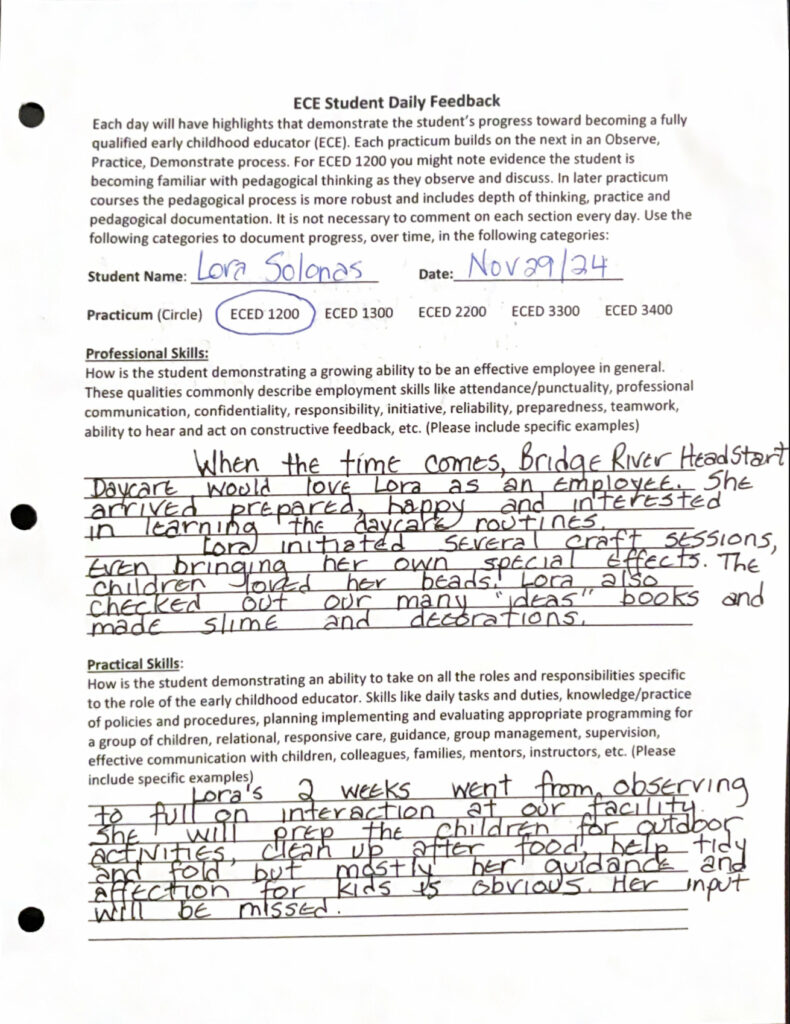 ECE Student Daily Feedback
Each day will have highlights that demonstrate the student's progress toward becoming a fully
qualified early childhood educator (ECE). Each practicum builds on the next in an Observe,
Practice, Demonstrate process. For ECED 1200 you might note evidence the student is
becoming familiar with pedagogical thinking as they observe and discuss. In later practicum
courses the pedagogical process is more robust and includes depth of thinking, practice and
pedagogical documentation. It is not necessary to comment on each section every day. Use the
following categories to document progress, over time, in the following categories:
Student Name: Lora Solonas Date: Nov 29/24
Practicum (Circle) ECED 1200 ECED 1300 ECED 2200 ECED 3300 ECED 3400
Professional Skills:
How is the student demonstrating a growing ability to be an effective employee in general.
These qualities commonly describe employment skills like attendance/punctuality, professional
communication, confidentiality, responsibility, initiative, reliability, preparedness, teamwork,
ability to hear and act on constructive feedback, etc. (Please include specific examples)
When the time comes, Bridge River HeadStart
Daycare would love Lora as an employee. She
arrived prepared, happy and interested
in learning the daycare routines.
Lora initiated several craft sessions,
Even bringing her own special effects. The
children loved her beads! Lora also
checked out our many "ideas" books and
made slime and decorations.
Practical Skills:
How is the student demonstrating an ability to take on all the roles and responsibilities specific
to the role of the early childhood educator. Skills like daily tasks and duties, knowledge/practice
of policies and procedures, planning implementing and evaluating appropriate programming for
a group of children, relational, responsive care, guidance, group management, supervision,
effective communication with children, colleagues, families, mentors, instructors, etc. (Please
include specific examples)
Lora's 2 weeks went from observing
to full on interaction at our facility.
She will prep the children for outdoor
activities, clean up after food, help tidy
and fold but mostly her guidance and
affection for kids is obvious. Her input
will be missed.